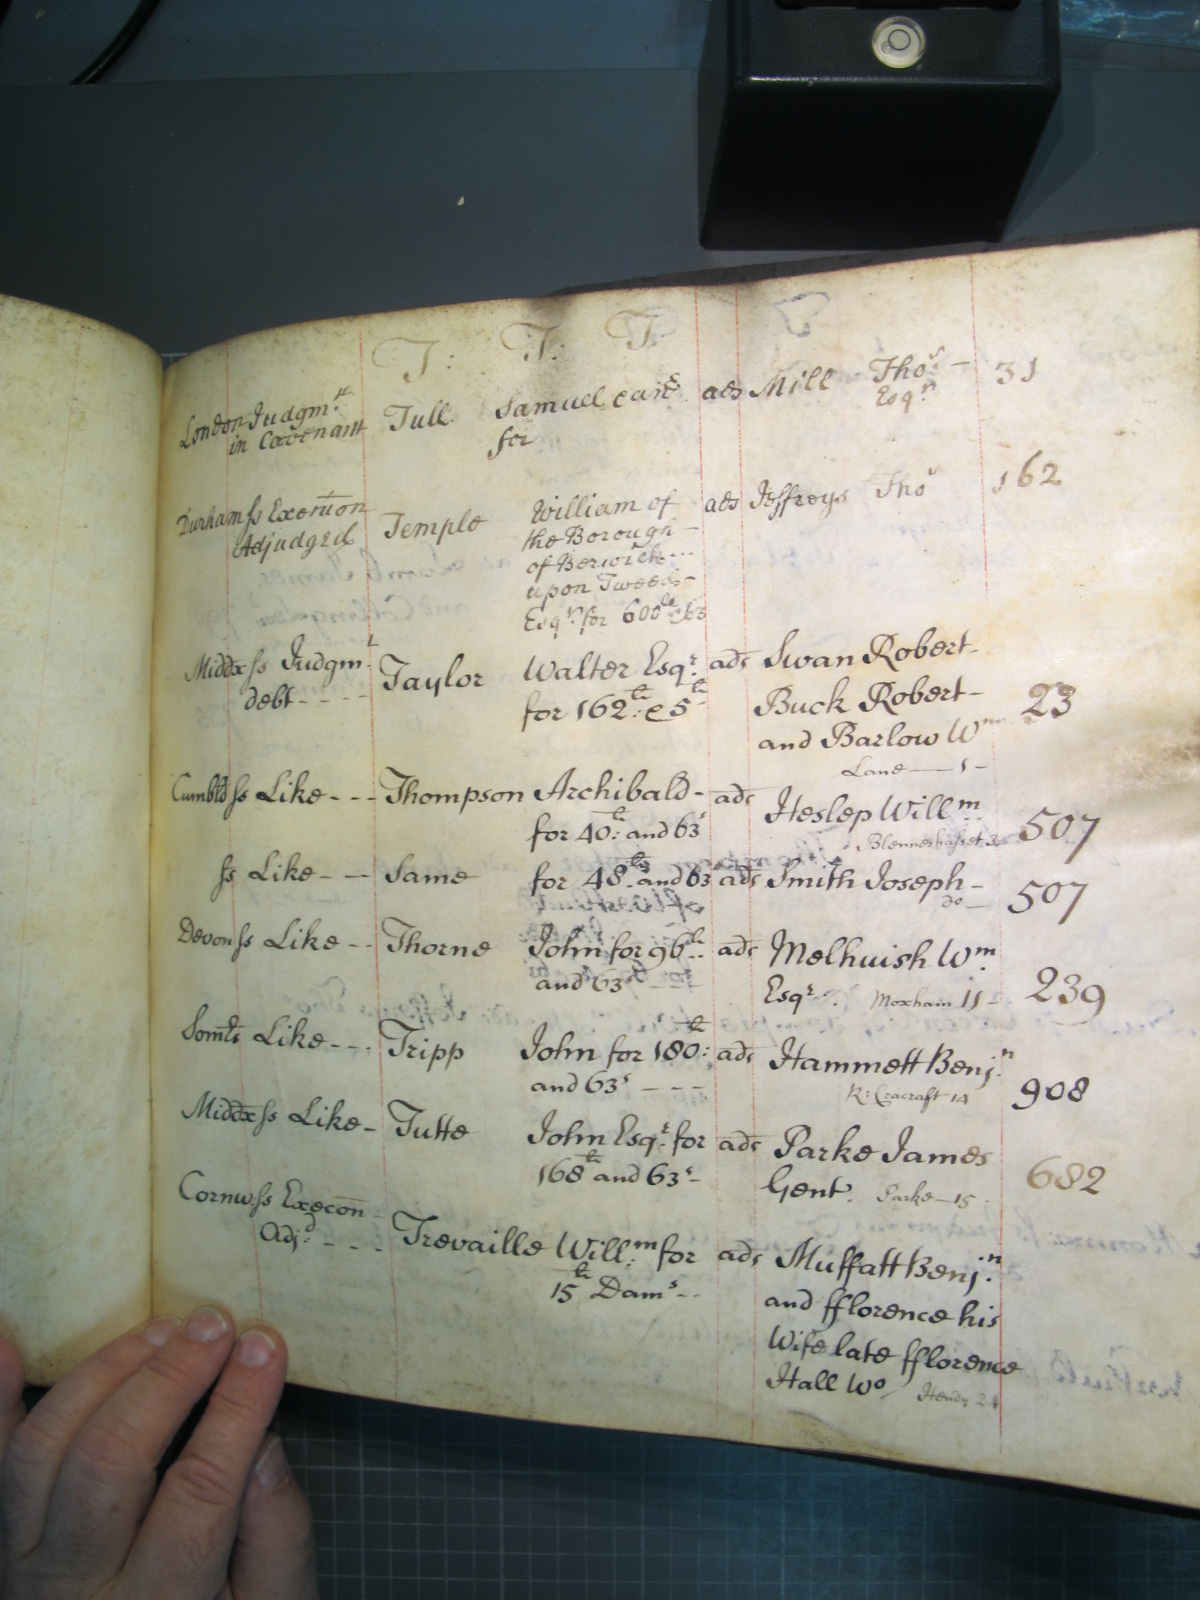 T: T: T
London Judgmt. Tull Samuel cañs ads Mill Thos. 31
in Covenant for Esqr.
Durham ss Execution Temple William of ads Jeffreys Thos 162
Adjudged the Borough
of Berwick
upon Tweed
Esqr. for 600li & 63
Middx ss Judgmt. Taylor Walter Esqr. ads Swan Robert 23
debt for 162li: & 5li Buck Robert
and Barlow Wm
Lane 1
Cumbld ss Like Thompson Archibald ads Heslep Willm. 507
for 40li: and 63s
ss Like Same for 48li and 63 ads Smith Joseph 507
do
Devon ss Like Thorne John for 96li ads Melhuish Wm. 239
and 63s Esqr. Moxham 11
Somts Like Tripp John for 180li: ads Hammett Benjn. 908
and 63s R: Cracraft 14
Middx ss Like Tutte John Esqr. for ads Parke James 682
168li and 63s Gent. Parke 15
Cornw. ss Execon Trevaille Willm. for ads Muffatt Benjn.
Adjd. 15li Dams and fflorence his
Wife late fflorence
Hall Wo Hendy 24